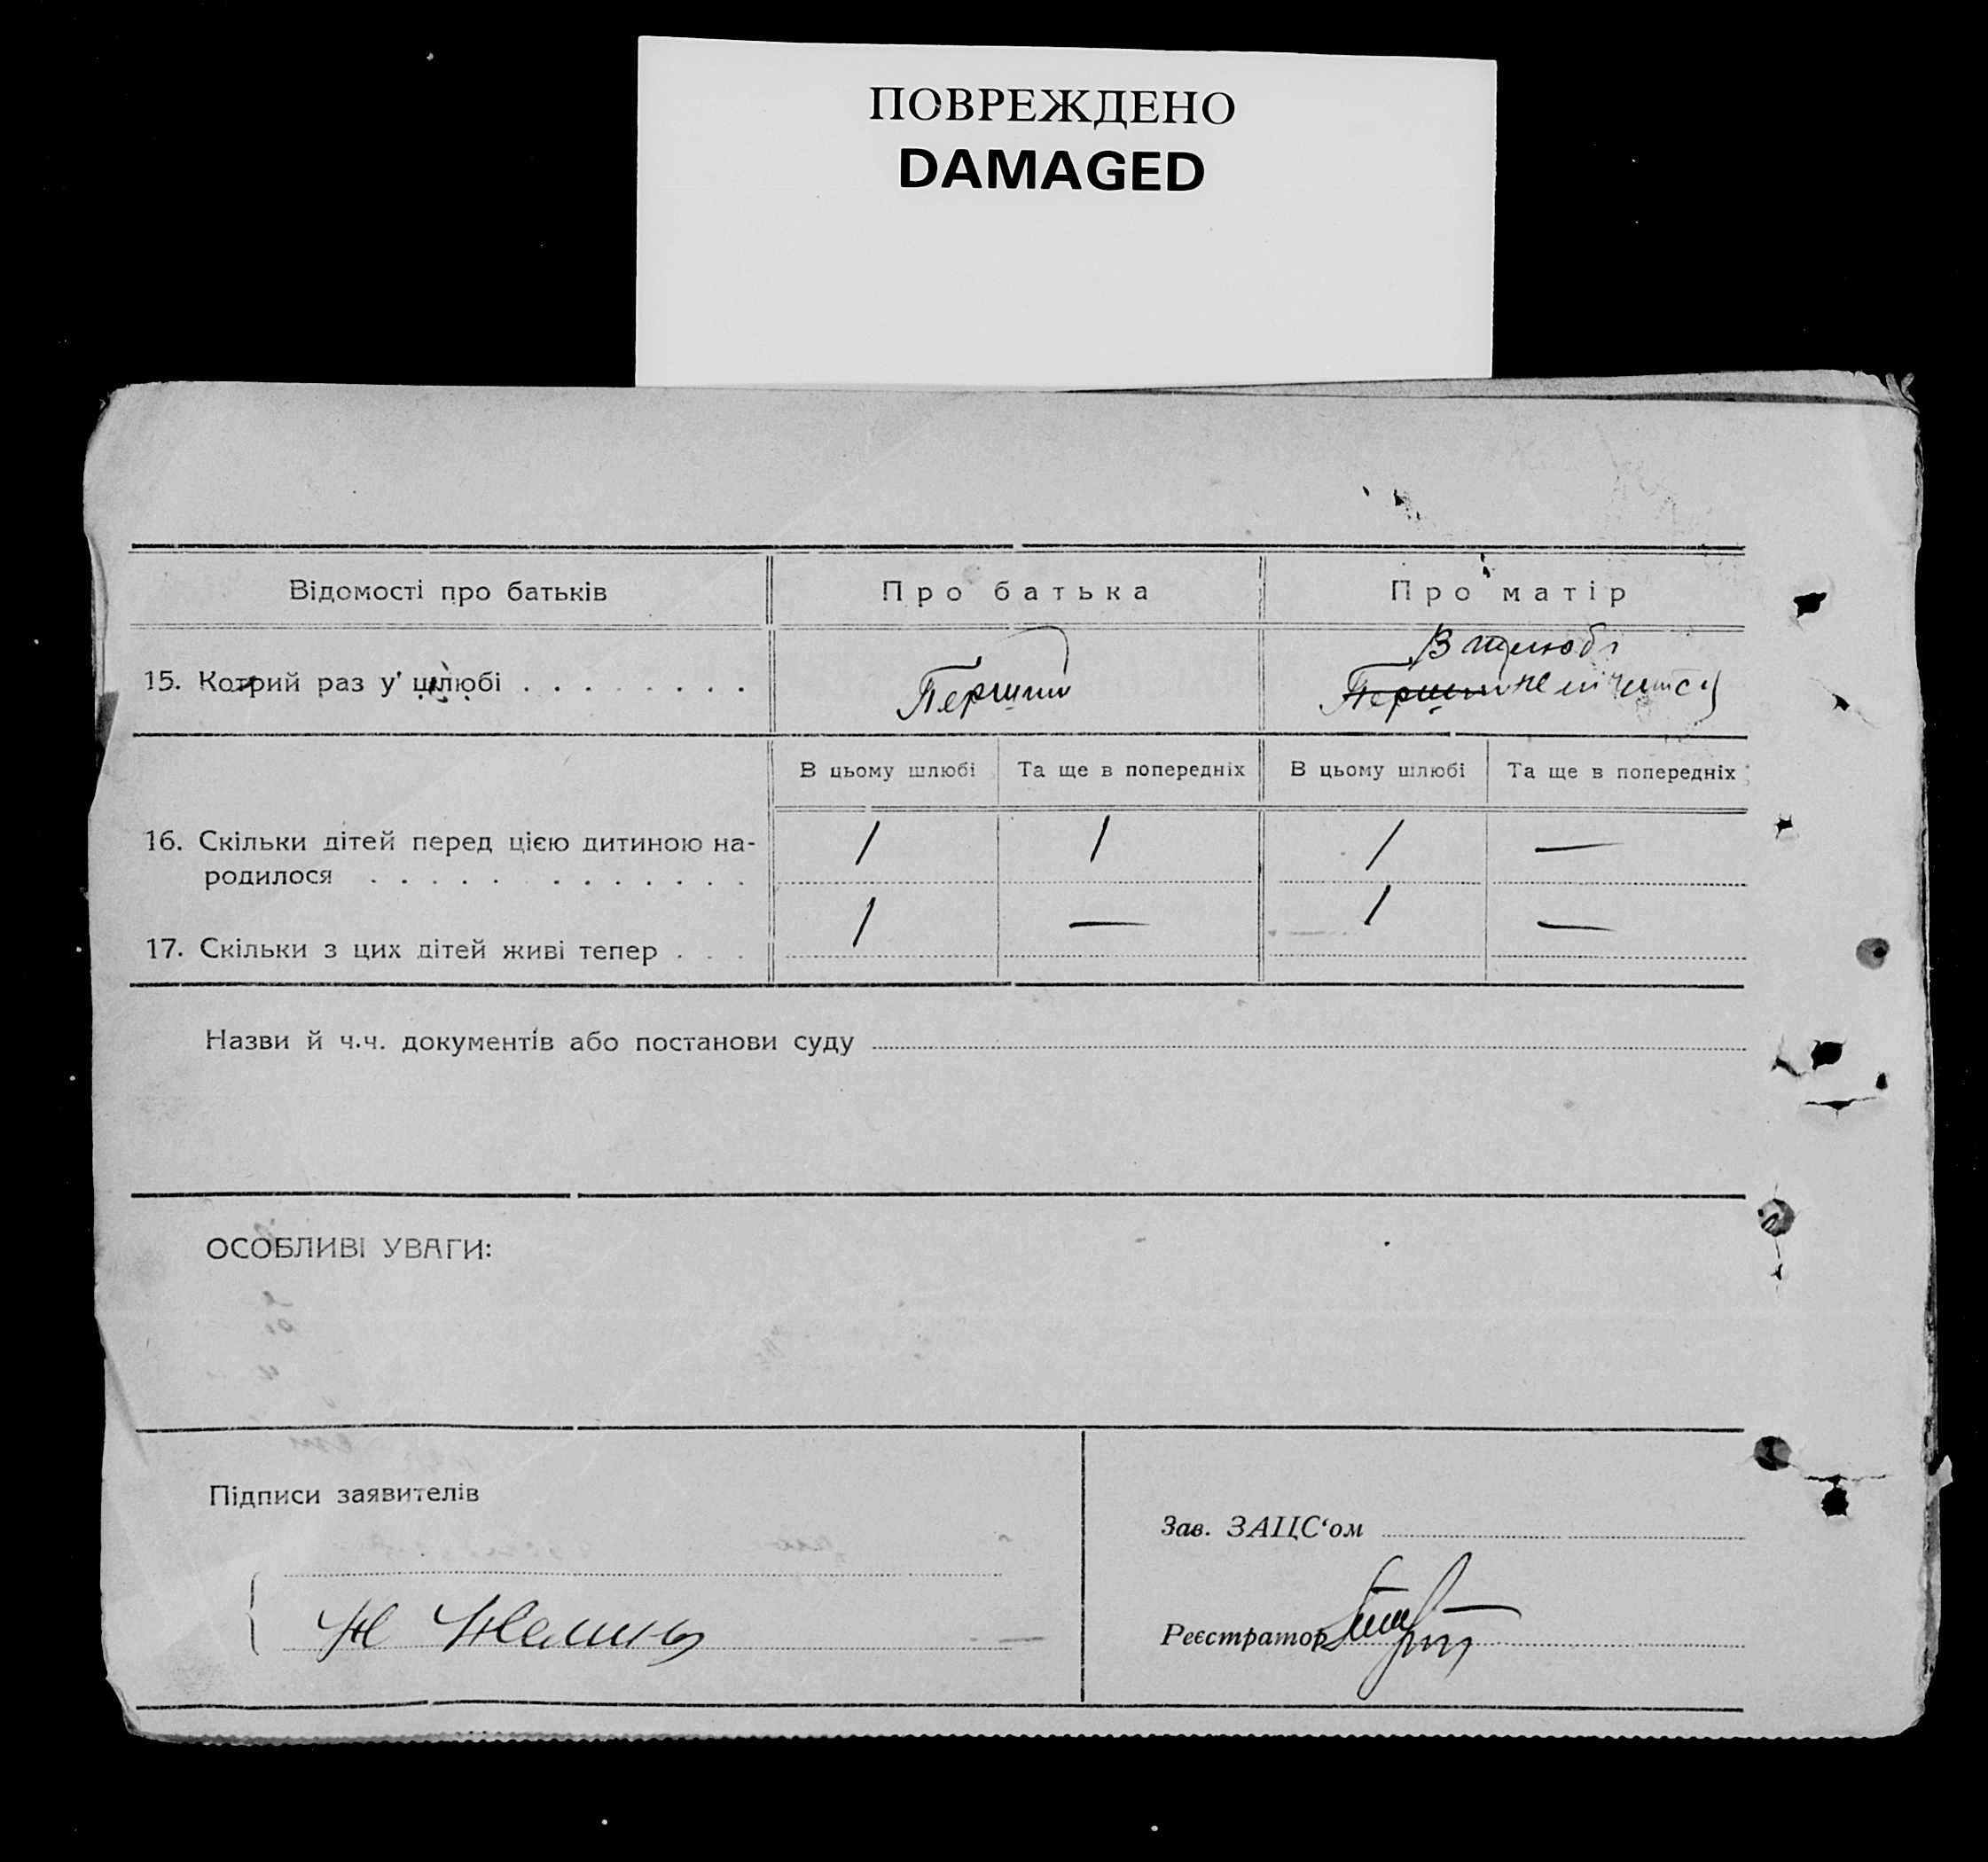 ПОВРЕЖДЕНО
DAMAGED
Відомості про батьків
Про батька
Про матір
15. Котрий раз у шлюбі . . . . . . . .
Перший
В шлюбі
Перший не лічится
В цьому шлюбі
Та ще в попередніх
В цьому шлюбі
Та ще в попередніх
16. Скільки дітей перед цією дитиною на-
родилося . . . . . . . . . . . .
/ / / —
17. Скільки з цих дітей живі тепер . . .
/ — / —
Назви й ч.ч. документів або постанови суду
ОСОБЛИВІ УВАГИ:
Підписи заявителів
Зав. ЗАЦС‘ом
Реєстратор